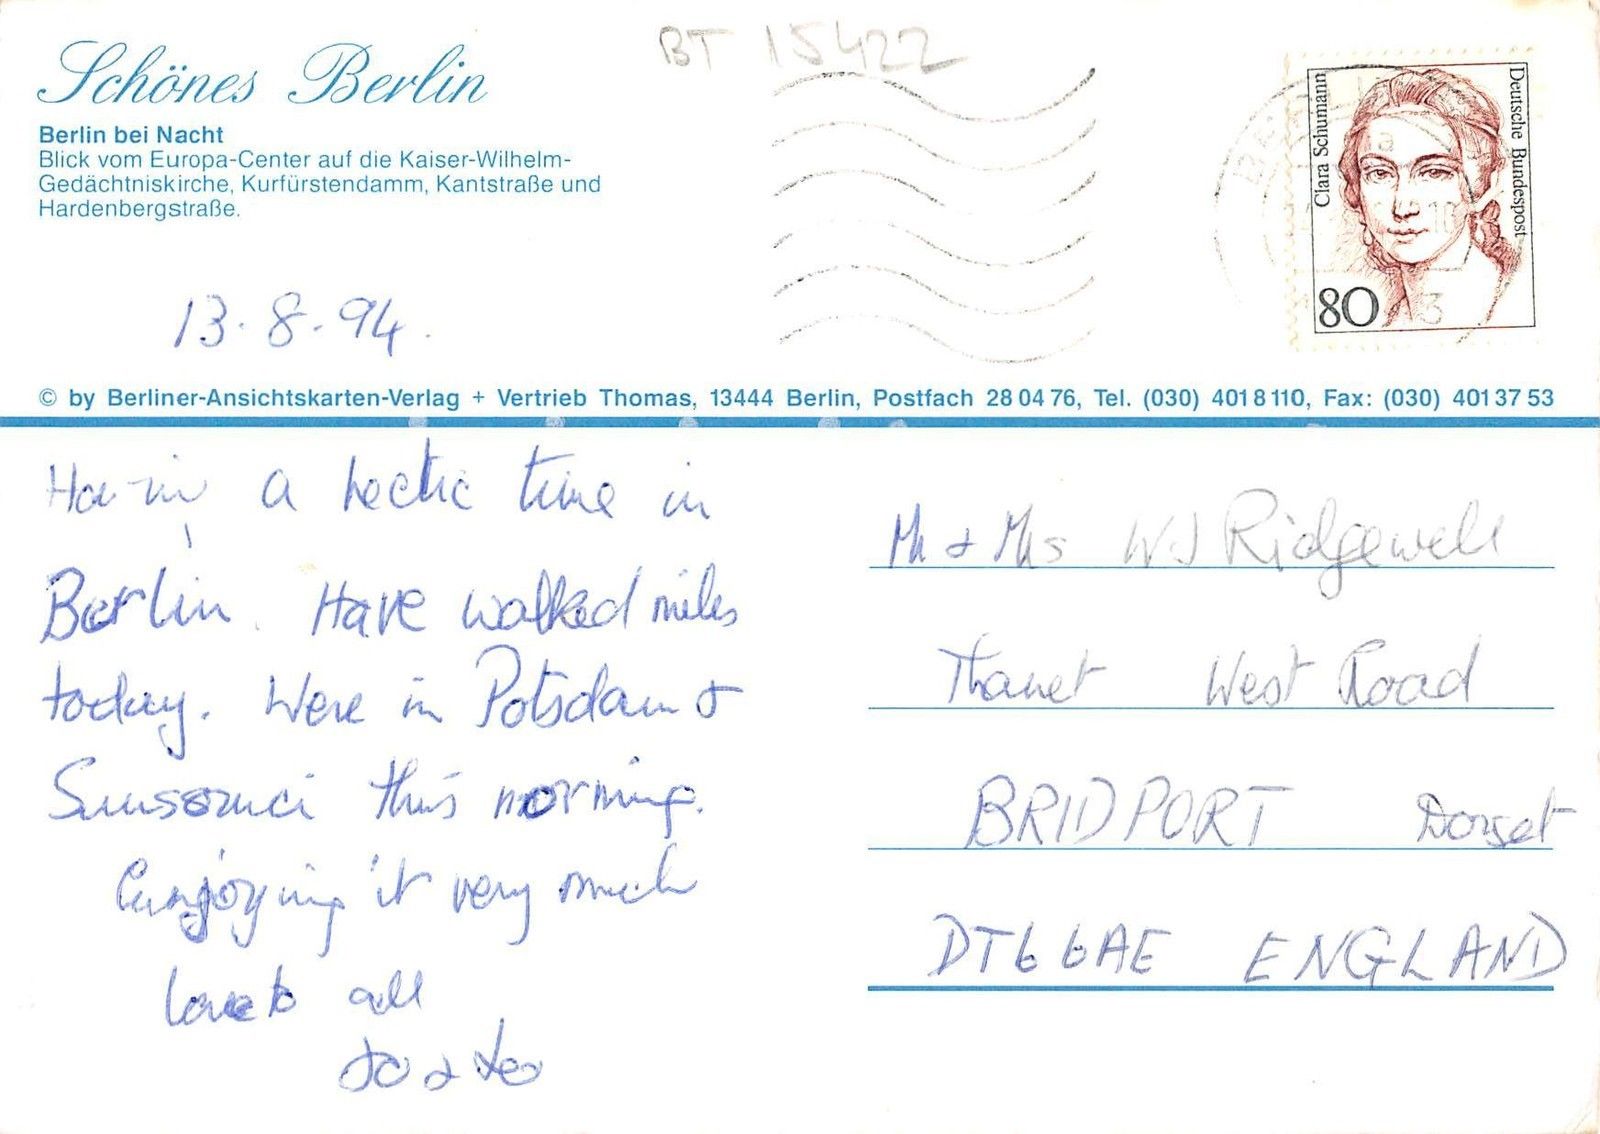 BT 15422
Schönes Berlin
Berlin bei Nacht
Blick vom Europa-Center auf die Kaiser-Wilhelm-
Gedächtniskirche, Kurfürstendamm, Kantstraße und
Hardenbergstraße.
Clara Schumann
Deutsche Bundespost
80
13.8.94.
© by Berliner-Ansichtskarten-Verlag + Vertrieb Thomas, 13444 Berlin, Postfach 28 04 76, Tel. (030) 401 8 110, Fax: (030) 401 37 53
Havin a hectic time in
Berlin. Have walked miles
today. Were in Potsdam &
Sunsouci this morning.
Enjoying it very much
love to all
Jo &
Mr & Mrs WJ Ridgewell
Thanet West Road
BRIDPORT Dorset
DT6 6AE ENGLAND